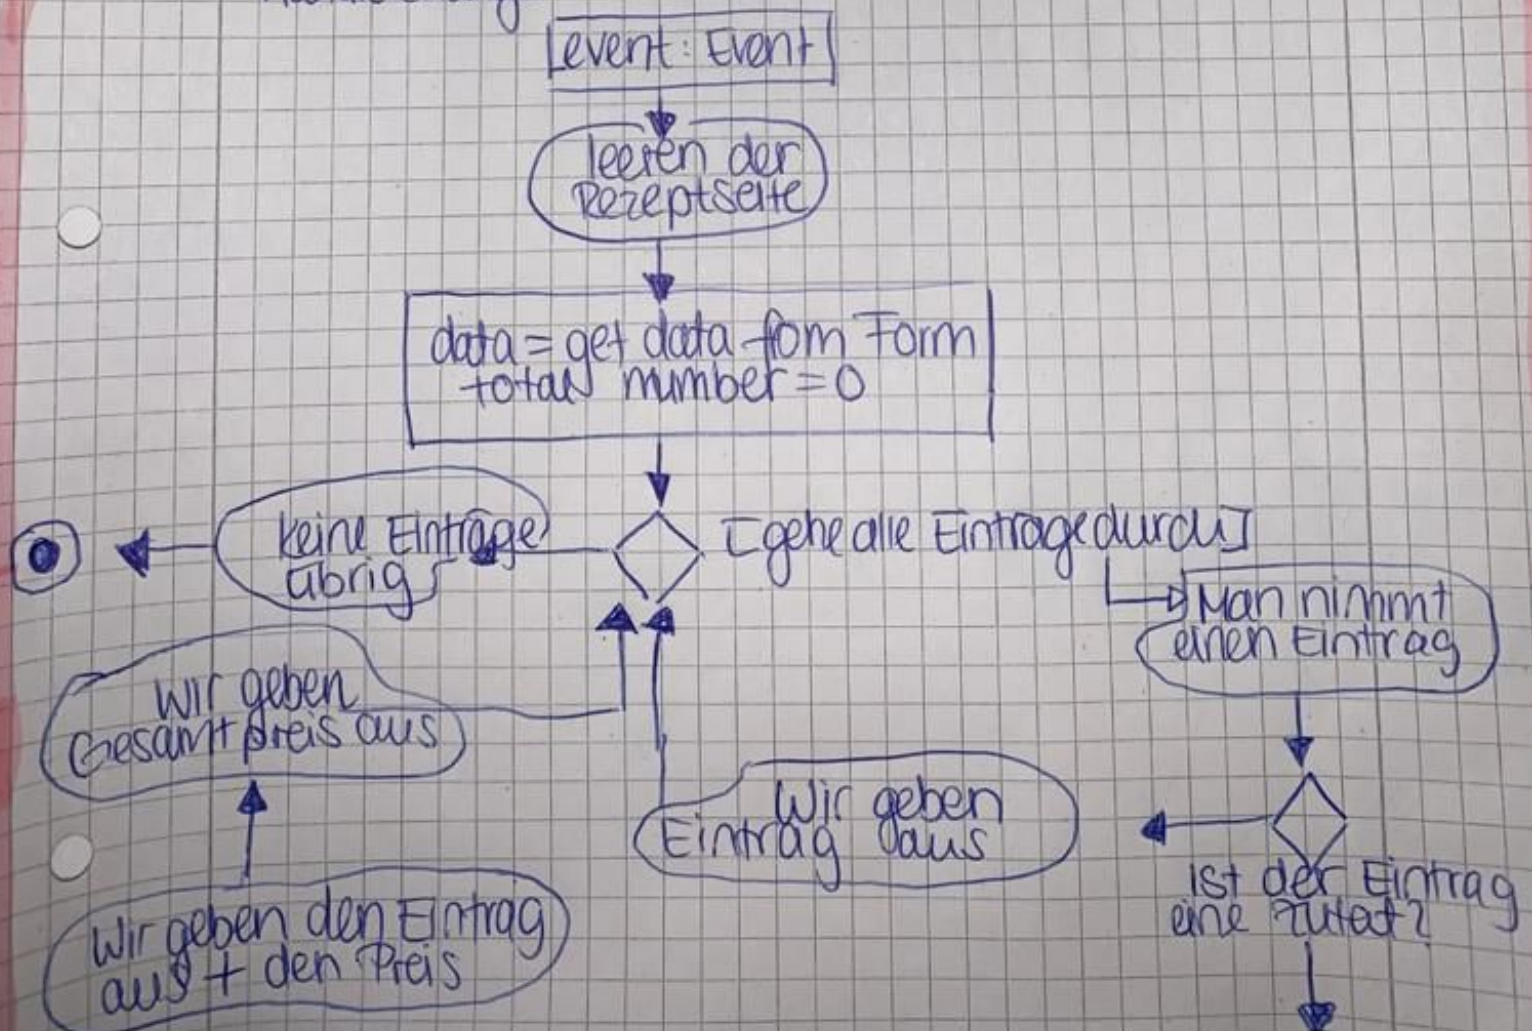 event: Event
leeren der
Rezeptseite
data = get data fom Form
total number = 0
keine Einträge
übrig
[gehe alle Einträge durch]
Man nimmt
einen Eintrag
Wir geben
Gesamtpreis aus
Wir geben
Eintrag aus
ist der Eintrag
eine Zutat?
Wir geben den Eintrag
aus + den Preis